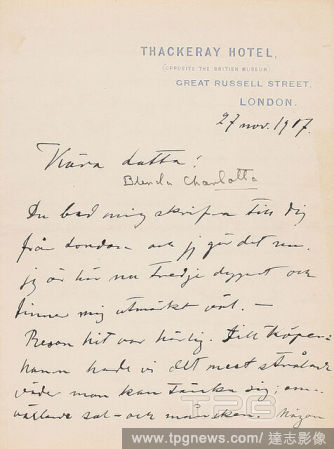 THACKERAY HOTEL,
(OPPOSITE THE BRITISH MUSEUM)
GREAT RUSSELL STREET,
LONDON.
27 nov. 1907.
Kära Lotta!
Blenda Charlotta
Du bad mig skrifva till dig
från London och jag gör det nu.
jag är här nu tredje dygnet och
finner mig utmärkt väl. —
Resan hit var härlig. Till Köpen-
hamn hade vi det mest strålande
väder man kan tänka sig; om-
växlande sol- och månsken. Någon
TPG
www.tpgnews.com/ 達志影像